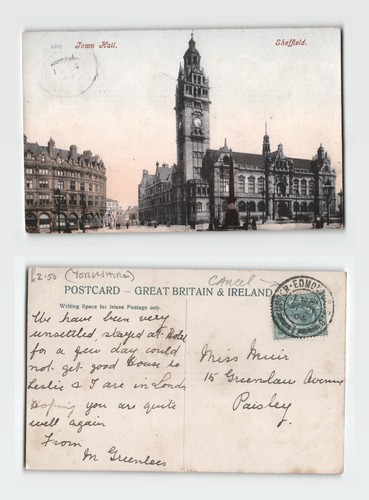 Town Hall.
Sheffield.
£2.50 (YORKSHIRE)
CANCEL
POSTCARD — GREAT BRITAIN & IRELAND
Writing Space for Inland Postage only.
We have been very
unsettled, stayed at Hotel
for a few day could
not get good House so
Leslie & I are in London
Hoping you are quite
well again
From
M Greenlees
Miss Muir
15 Greenlaw Avenue
Paisley